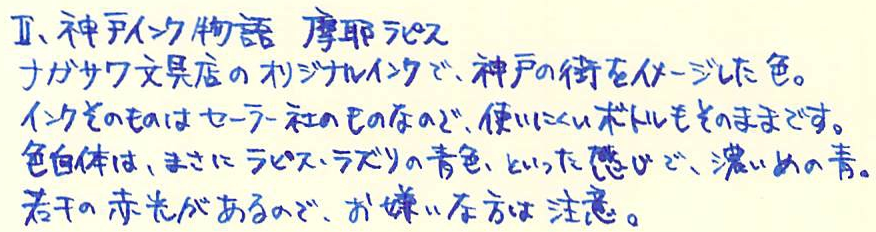 Ⅱ、神戸インク物語 摩耶ラピス
ナガサワ文具店のオリジナルインクで、神戸の街をイメージした色。
インクそのものはセーラー社のものなので、使いにくいボトルもそのままです。
色自体は、まさにラピス・ラズリの青色、といった感じで、濃いめの青。
若干の赤光があるので、お嫌いな方は注意。